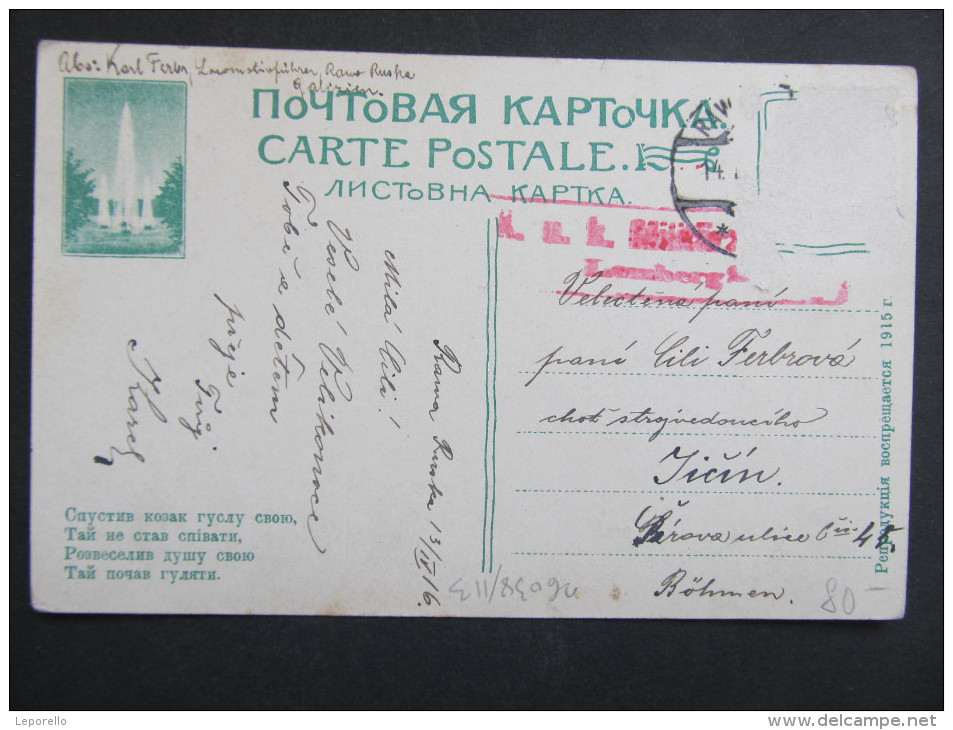 Abs: Karl Ferbr, Locomotivführer, Rawa Ruska
Galizien.
ПОЧТОВАЯ КАРТОЧКА.
CARTE POSTALE.
ЛИСТОВНА КАРТКА.
RAW
14.
K. u. k.
Lemberg
Rawa Ruska 13/IV 16.
Milá Cili!
Veselé Velikonoce
Tobě a dětem
přeje
Tvůj
Karel
Velectěná paní
paní Cili Ferbrová
choť strojvedoucího
Jičín.
ulice čís. 45
Böhmen.
Спустив козак гуслу свою,
Тай не став співати,
Розвеселив душу свою
Тай почав гуляти.
Репродукція воспрещается 1915 г.
80-
Leporello
www.delcampe.net